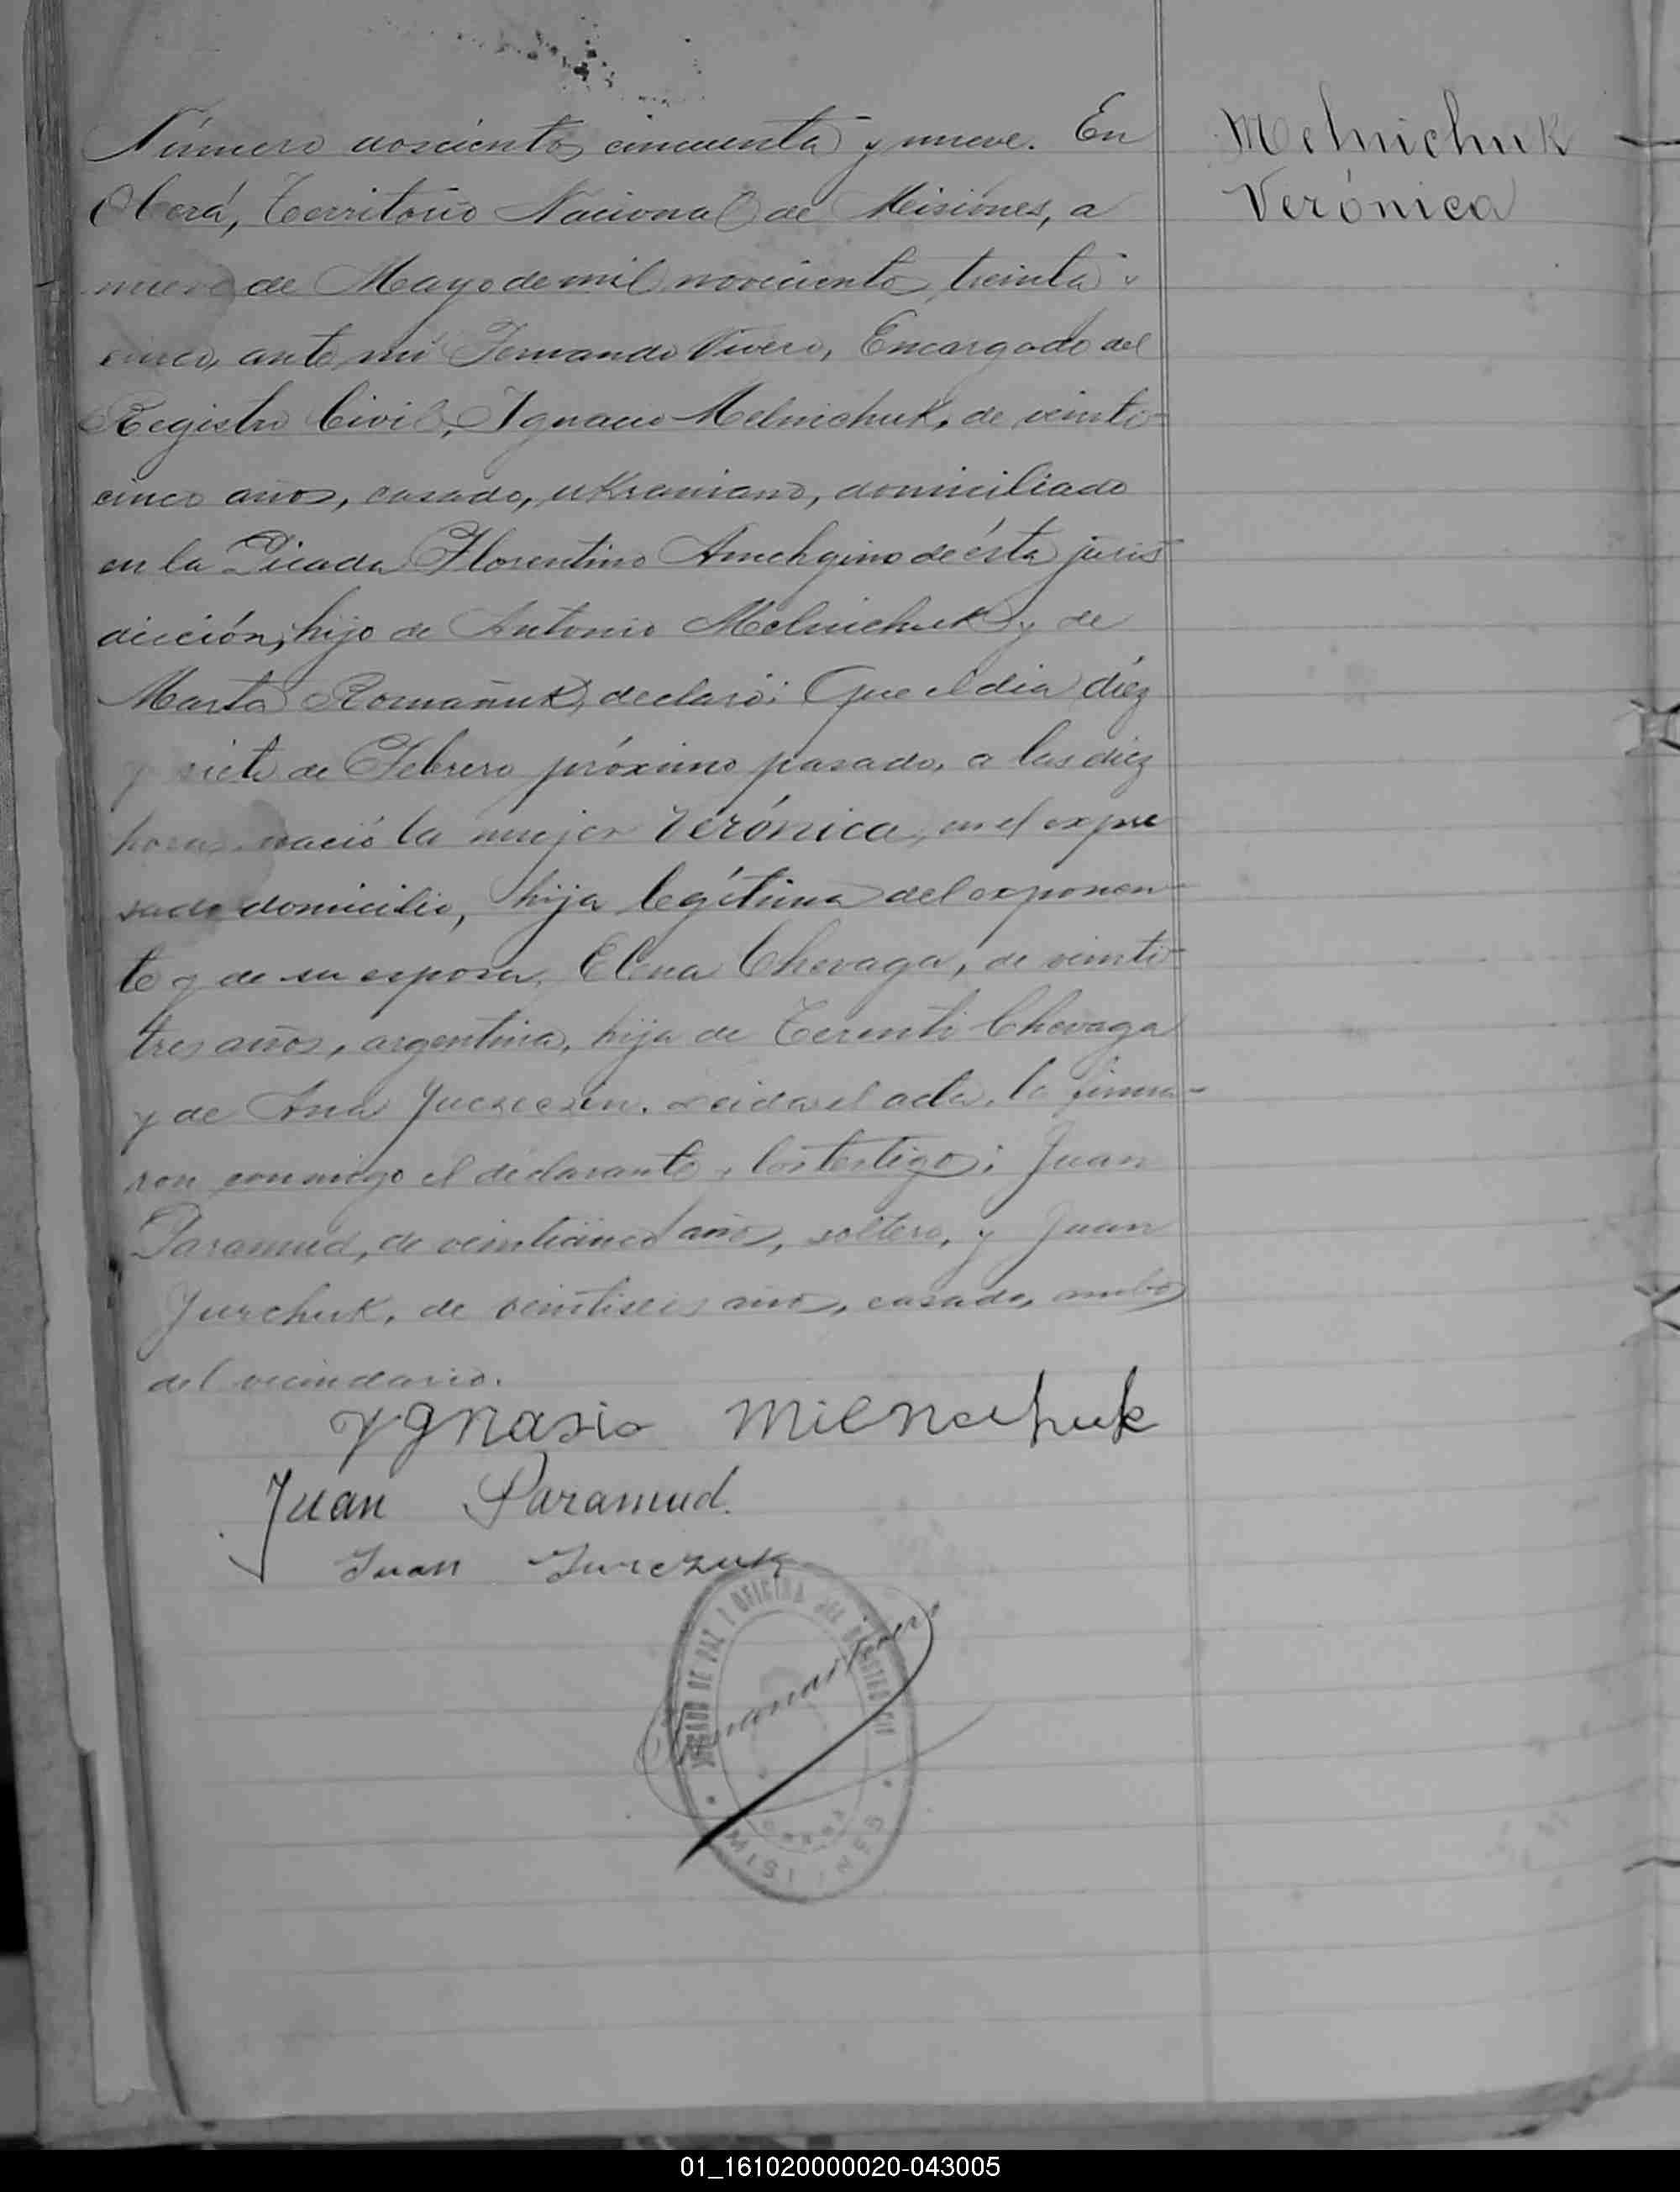 Número doscientos cincuenta y nueve. En
Oberá, Territorio Nacional de Misiones, a
nueve de Mayo de mil novecientos treinta y
cinco, ante mí Fernando Vivero, Encargado del
Registro Civil, Ignacio Melnichuk, de veinti-
cinco años, casado, ukraniano, domiciliado
en la Picada Florentino Amehgino de ésta juris
dicción, hijo de Antonio Melnichuk y de
Marta Romañuk, declaró: Que el dia diéz
y siete de Febrero próximo pasado, a las diez
horas nació la mujer Verónica, en el expre
sado domicilio, hija legítima del exponen-
te y de su esposa, Elena Chevaga, de veinti-
tres años, argentina, hija de Terenti Chevaga
y de Ana. Leida el acta, la firma-
ron conmigo el declarante y los testigos: Juan
Paramud, de veinticinco años, soltero, y Juan
Jurchuk, de veintiseis años, casado, ambos
del vecindario.
Melnichuk
Verónica
Ygnasio Milnechuk
Juan Paramud.
Juan Jurczuk
JUZGADO DE PAZ Y OFICINA DEL REGISTRO CIVIL
MISIONES
01_161020000020-043005